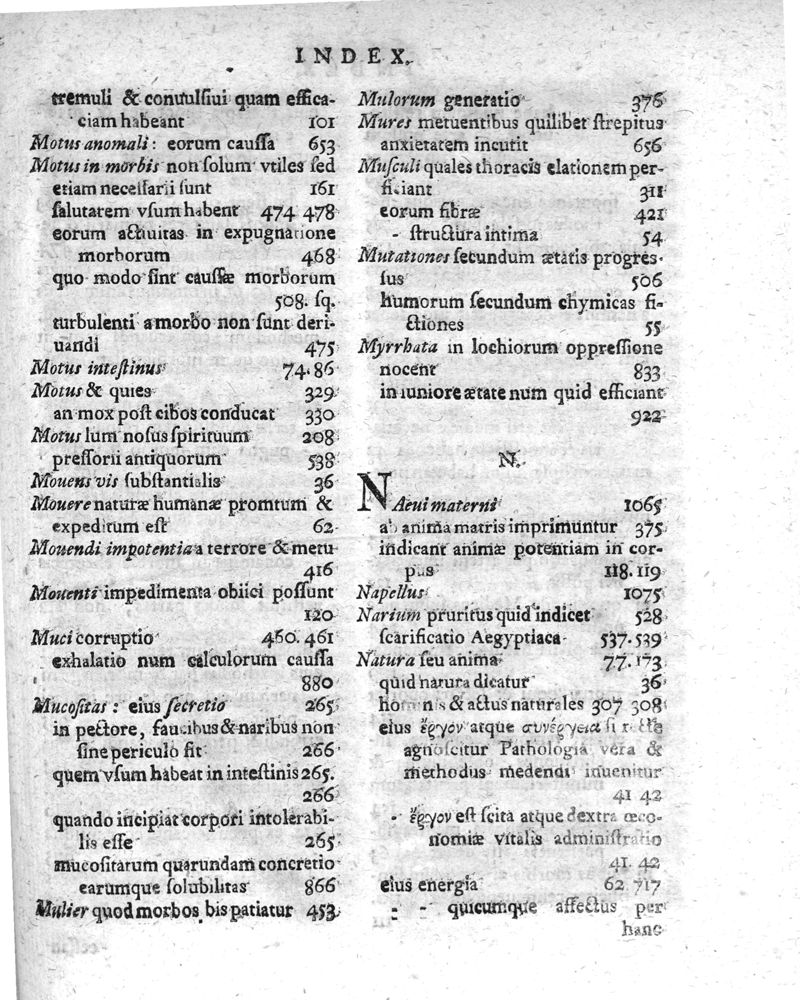 INDEX.
tremuli & conuulſiui quam effica-
ciam habeant 101
Motus anomali: eorum cauſſa 653
Motus in morbis non ſolum vtiles ſed
etiam neceſſarii ſunt 161
ſalutarem vſum habent 474 478
eorum actiuitas in expugnatione
morborum 468
quo modo ſint cauſſæ morborum
508. ſq.
turbulenti a morbo non ſunt deri-
uandi 475
Motus inteſtinus 74. 86
Motus & quies 329
an mox poſt cibos conducat 330
Motus lum noſus ſpirituum 208
preſſorii antiquorum 538
Mouens vis ſubſtantialis 36
Mouere naturæ humanæ promtum &
expeditum eſt 62
Mouendi impotentia a terrore & metu
416
Mouenti impedimenta obiici poſſunt
120
Muci corruptio 460. 461
exhalatio num calculorum cauſſa
880
Mucoſitas: eius ſecretio 265
in pectore, faucibus & naribus non
ſine periculo fit 266
quem vſum habeat in inteſtinis 265.
266
quando incipiat corpori intolerabi-
lis eſſe 265
mucoſitatum quarundam concretio
earumque ſolubilitas 866
Mulier quod morbos bis patiatur 453
Mulorum generatio 376
Mures metuentibus quilibet ſtrepitus
anxietatem incutit 656
Muſculi quales thoracis elationem per-
ficiant 311
eorum fibræ 421
- ſtructura intima 54
Mutationes ſecundum ætatis progreſ-
ſus 506
humorum ſecundum chymicas fi-
ctiones 55
Myrrhata in lochiorum oppreſſione
nocent 833
in iuniore ætate num quid efficiant
922
N.
NAeui materni 1065
ab anima matris imprimuntur 375
indicant animæ potentiam in cor-
pus 118. 119
Napellus 1075
Narium pruritus quid indicet 528
ſcarificatio Aegyptiaca 537. 539
Natura ſeu anima 77. 173
quid natura dicatur 36
hom nis & actus naturales 307 308
eius ἔργον atque συνέργεια ſi r cte
agnoſcitur Pathologia vera &
methodus medendi inuenitur
41 42
- ἔργον eſt ſcita atque dextra œco-
nomiæ vitalis adminiſtratio
41. 42
eius energia 62. 717
- - quicumque affectus per
hanc